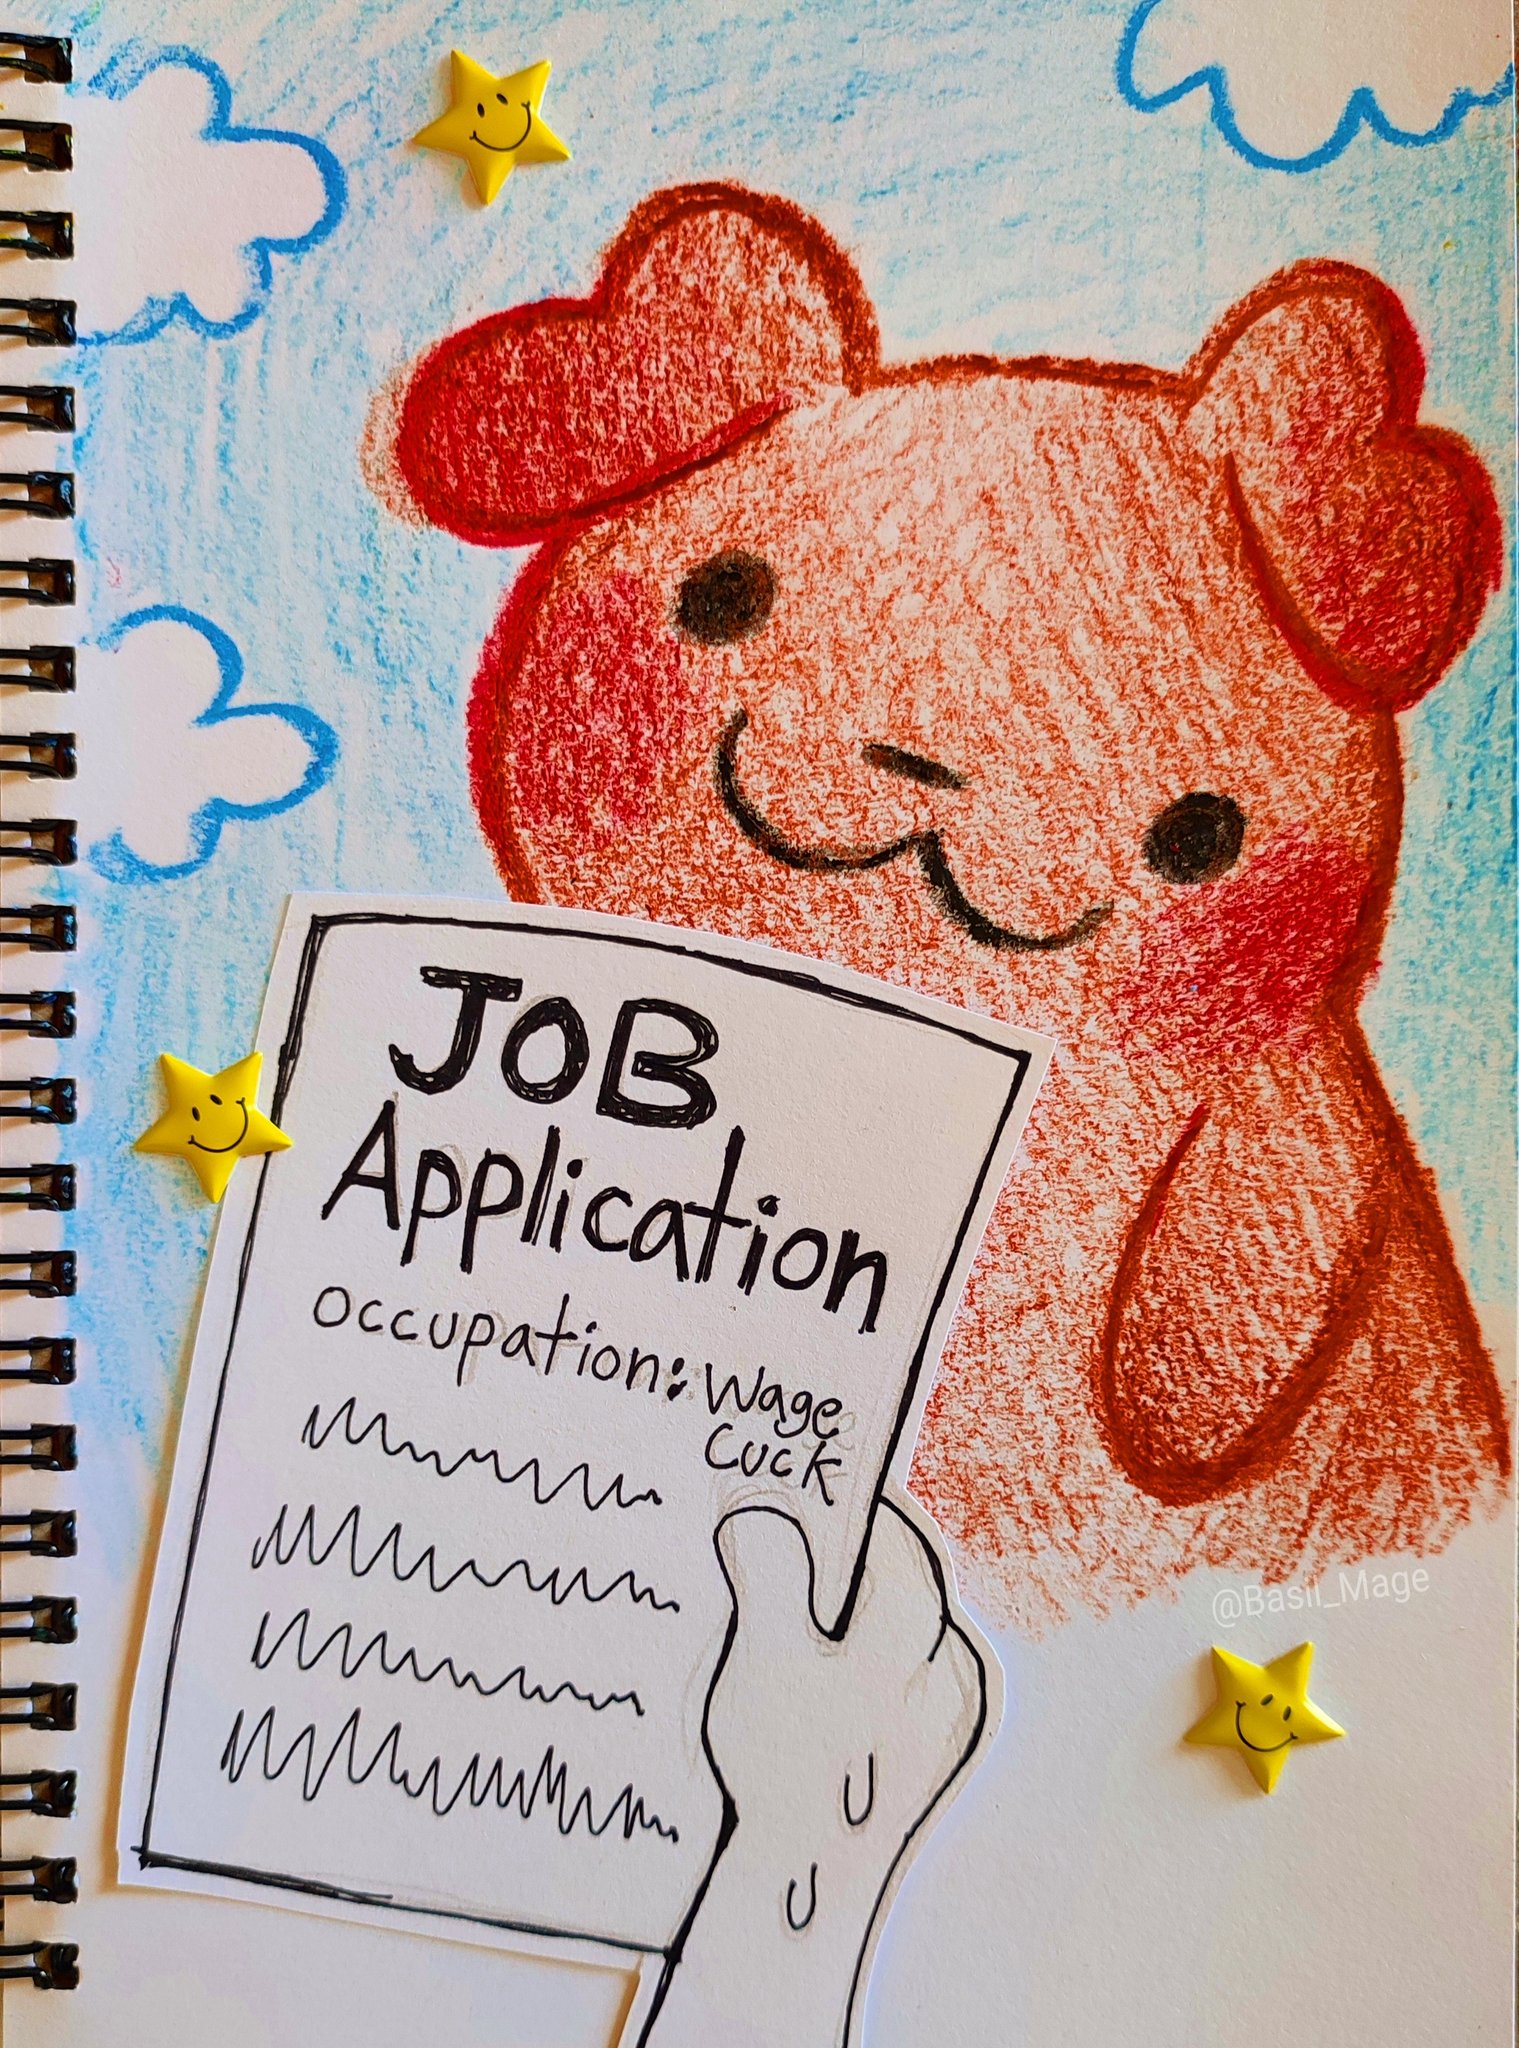 JOB
Application
occupation: Wage
Cuck
@Basil_Mage